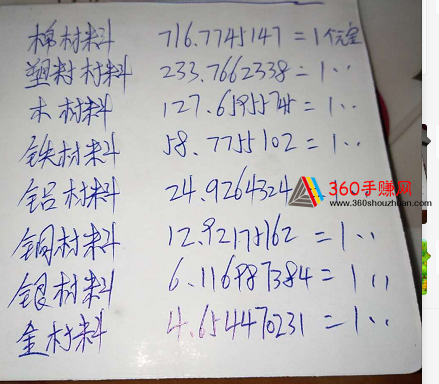 梯材料 716.7745147=1个元宝
塑料材料 233.7662338=1..
木材料 127.6595745=1..
铁材料 58.7755102=1..
铝材料 24.9264324
360手赚网
www.360shouzhuan.com
铜材料 12.92175162=1..
银材料 6.116987384=1..
金材料 4.654470231=1..